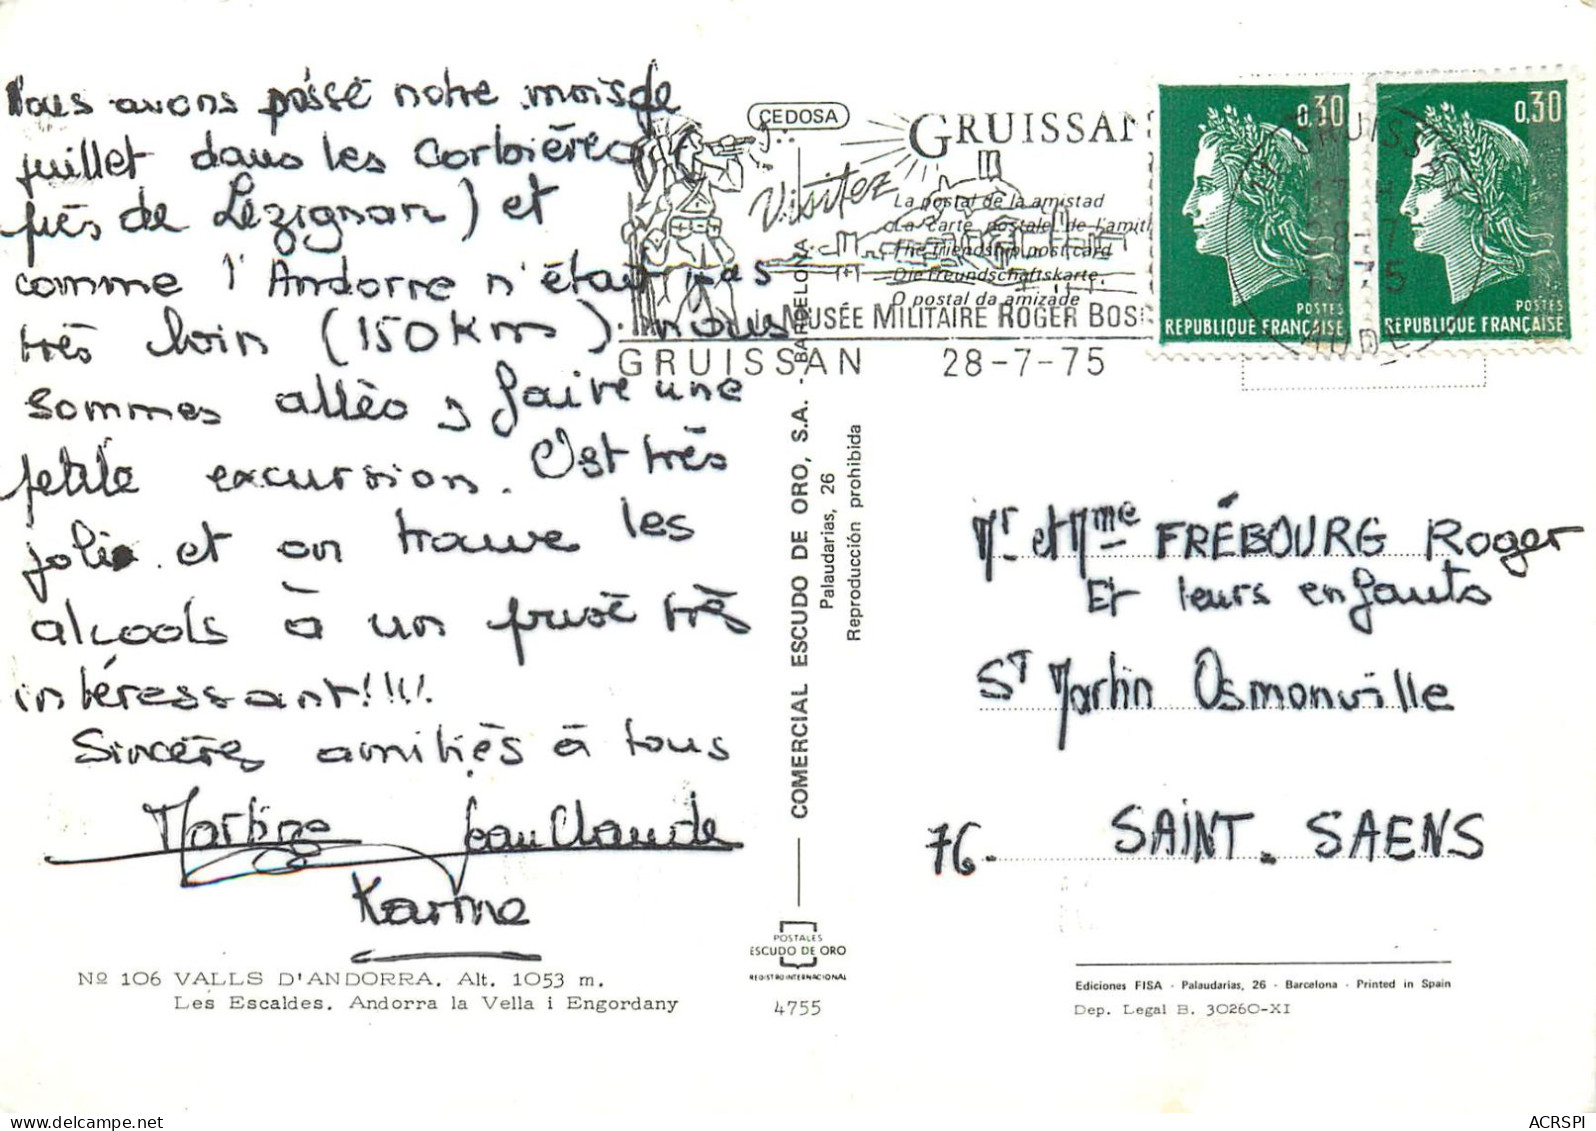 Nous avons passé notre mois de
juillet dans les Corbières (
près de Lézignan) et
comme l'Andorre n'était pas
très loin (150 Kms) nous
sommes allés y faire une
petite excursion. C'est très
joli et on trouve les
alcools à un prix très
intéressant!!!!
Sincères amitiés à tous
Martine Jean Claude
Karine
Nº 106 VALLS D'ANDORRA. Alt. 1053 m.
Les Escaldes. Andorra la Vella i Engordany
CEDOSA
GRUISSAN
Visitez
La postal de la amistad
La carte postale de l'amitié
The friendship post card
Die freundschaftskarte.
O postal da amizade
MUSÉE MILITAIRE ROGER BOSC
GRUISSAN 28-7-75
COMERCIAL ESCUDO DE ORO, S.A. - BARCELONA
Palaudarias, 26
Reproducción prohibida
POSTALES
ESCUDO DE ORO
REGISTRO INTERNACIONAL
4755
0,30
POSTES
REPUBLIQUE FRANÇAISE
0,30
POSTES
REPUBLIQUE FRANÇAISE
11 GRUISSAN
28-7
1975
AUDE
Mr et Mme FRÉBOURG Roger
Et leurs enfants
St Martin Osmonville
76. SAINT. SAENS
Ediciones FISA - Palaudarias, 26 - Barcelona - Printed in Spain
Dep. Legal B. 30260-XI
ACRSPI